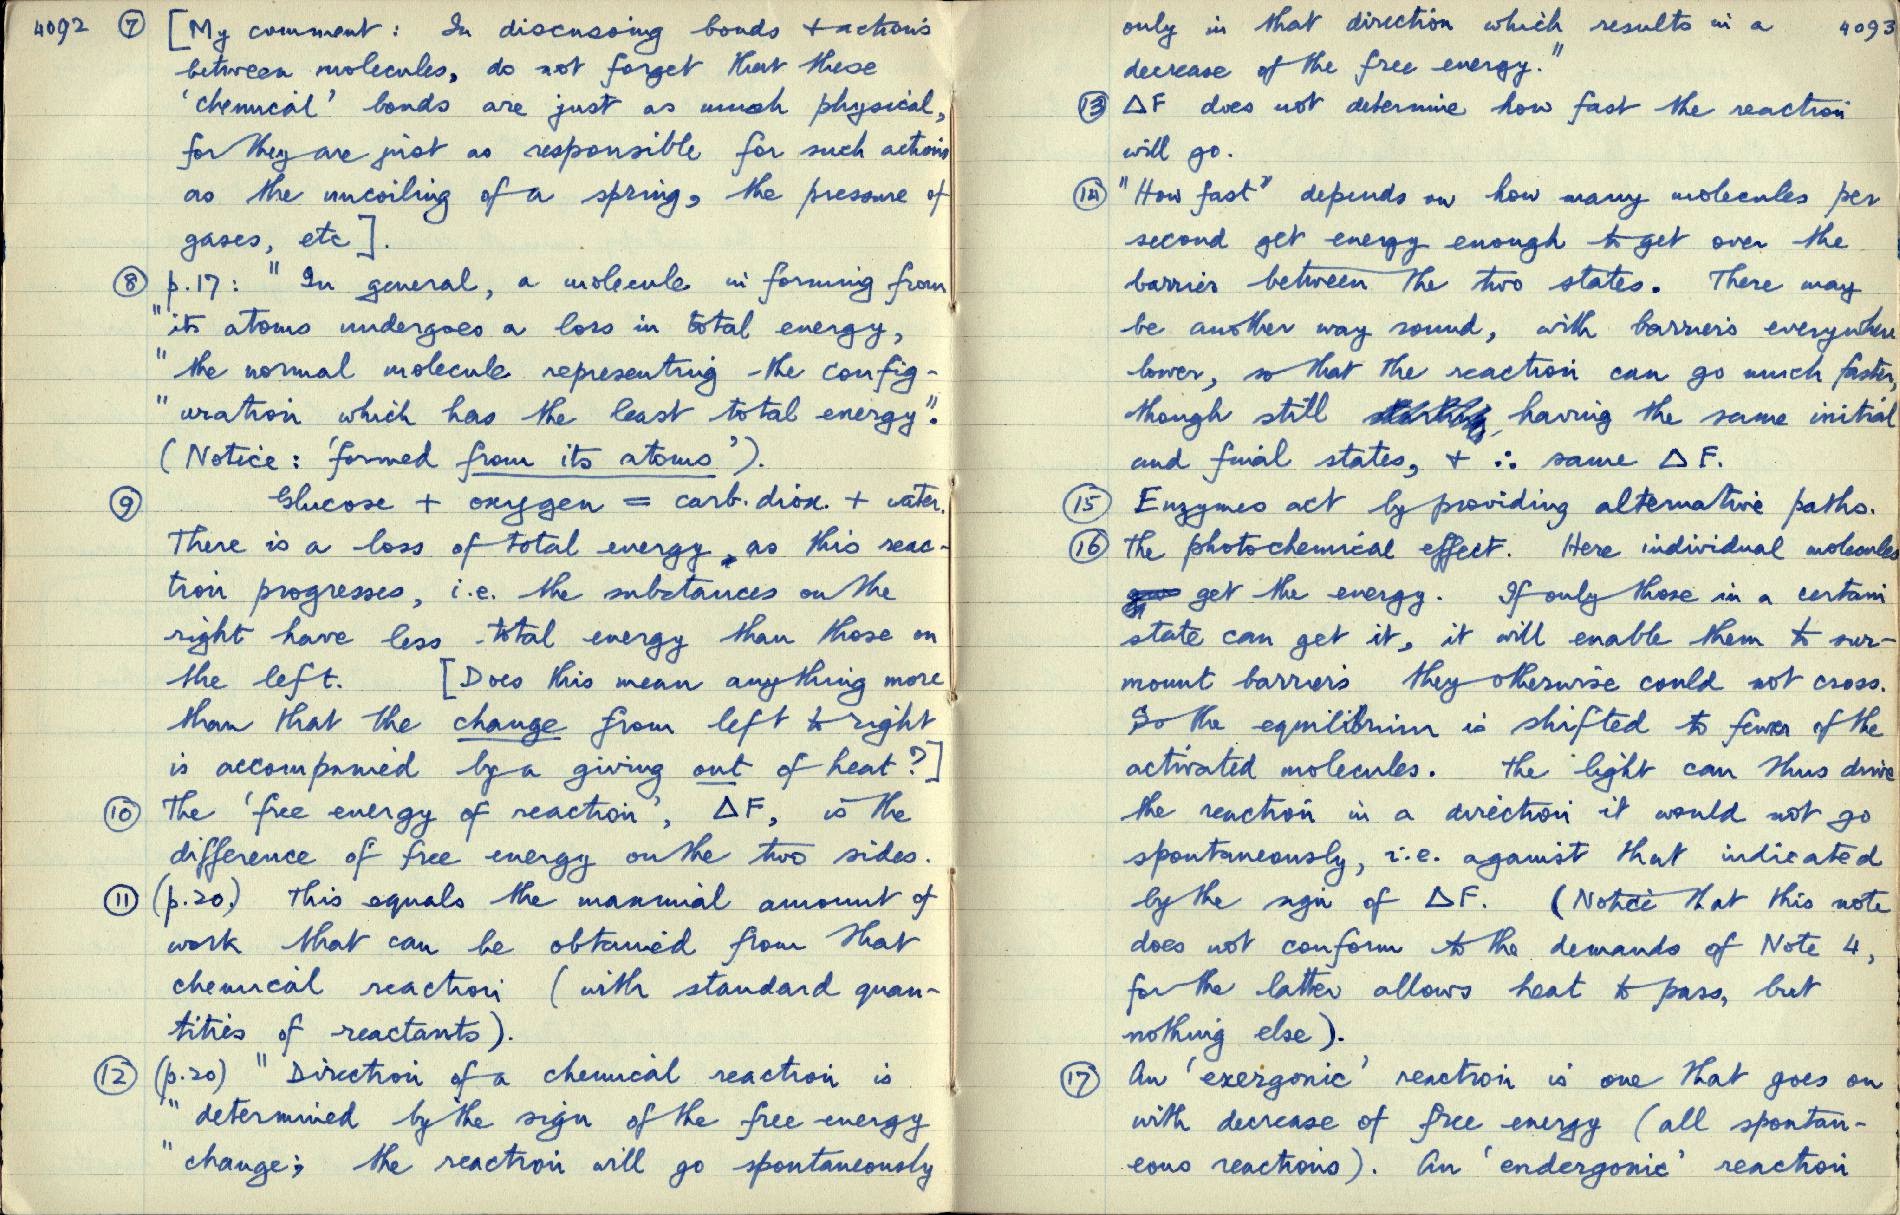 4092 ⑦ [My comment: In discussing bonds + actions
between molecules, do not forget that these
'chemical' bonds are just as much physical,
for they are just as responsible for such actions
as the uncoiling of a spring, the pressure of
gases, etc].
⑧ p.17: " In general, a molecule in forming from
"its atoms undergoes a loss in total energy,
"the normal molecule representing the config-
"uration which has the least total energy".
(Notice: 'formed from its atoms').
⑨ Glucose + oxygen = carb. diox. + water.
There is a loss of total energy, as this reac-
tion progresses, i.e. the substances on the
right have less total energy than those on
the left. [Does this mean anything more
than that the change from left to right
is accompanied by a giving out of heat?]
⑩ The 'free energy of reaction', ΔF, is the
difference of free energy on the two sides.
⑪ (p.20.) This equals the maximal amount of
work that can be obtained from that
chemical reaction (with standard quan-
tities of reactants).
⑫ (p.20) "Direction of a chemical reaction is
"determined by the sign of the free energy
"change; the reaction will go spontaneously
only in that direction which results in a 4093
decrease of the free energy."
⑬ ΔF does not determine how fast the reaction
will go.
⑭ "How fast" depends on how many molecules per
second get energy enough to get over the
barrier between the two states. There may
be another way round, with barriers everywhere
lower, so that the reaction can go much faster,
though still having the same initial
and final states, + ∴ same ΔF.
⑮ Enzymes act by providing alternative paths.
⑯ The photochemical effect. Here individual molecules
get the energy. If only those in a certain
state can get it, it will enable them to sur-
mount barriers they otherwise could not cross.
So the equilibrium is shifted to fewer of the
activated molecules. The light can thus drive
the reaction in a direction it would not go
spontaneously, i.e. against that indicated
by the sign of ΔF. (Notice that this note
does not conform to the demands of Note 4,
for the latter allows heat to pass, but
nothing else).
⑰ An 'exergonic' reaction is one that goes on
with decrease of free energy (all spontan-
eous reactions). An 'endergonic' reaction